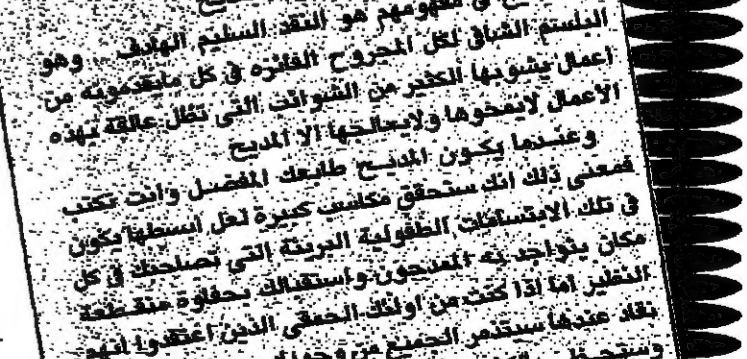 في مفهومهم هو النقد السليم الهادف وهو
البلسم الشافي لكل الجروح الغائره في كل مايقدمونه من
اعمال يشوبها الكثير من الشوائب التي تظل عالقة بهذه
الاعمال لايمحوها ولايعالجها الا المديح
وعندما يكون المديح طابعك المفضل وانت تكتب
فمعنى ذلك انك ستحقق مكاسب كبيرة لعل ابسطها يكون
في تلك الابتسامات الطفولية البريئة التي تصاحبك في كل
مكان يتواجد به الممدحون واستقبالك بحفاوة منقطعة
النظير أما إذا كنت من اولئك الحمقى الذين اعتقدوا انهم
نقاد عندها سيتذمر الجميع من وجودك